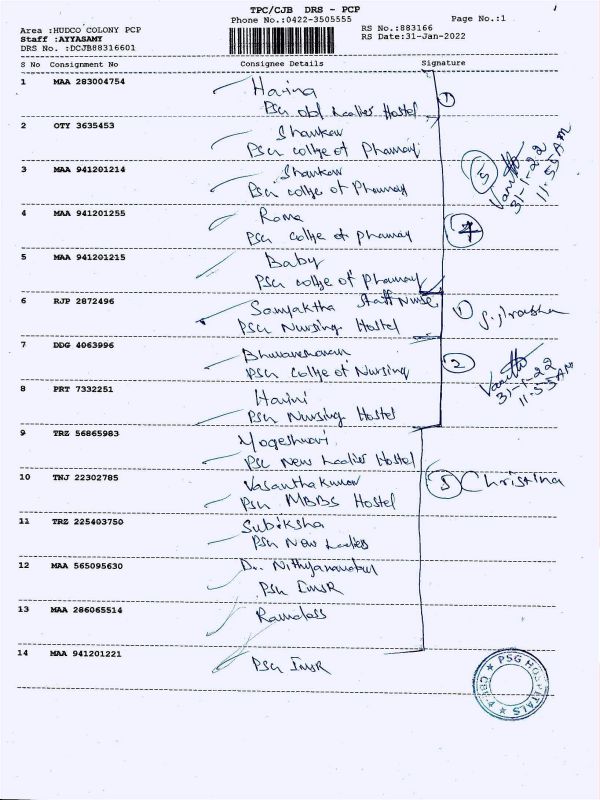 TPC/CJB DRS - PCP
Phone No.:0422-3505555
Page No.:1
Area :HUDCO COLONY PCP
RS No.:883166
Staff :AYYASAMY
RS Date:31-Jan-2022
DRS No. :DCJB88316601
S No Consignment No Consignee Details Signature
1 MAA 283004754 Harina
PSG old Ladies Hostel
1
2 OTY 3635453 Shankar
PSG collge of Pharmacy
3 MAA 941201214 Shankar
PSG collge of Pharmacy
5
31-1-22
11.55 AM
4 MAA 941201255 Roma
PSG collge of Pharmacy
4
5 MAA 941201215 Baby
PSG collge of Pharmacy
6 RJP 2872496 Samyaktha Staff Nurse
PSG Nursing Hostel
1
7 DDG 4063996
PSG Collge of Nursing
2
31-1-22
11.55 AM
8 PRT 7332251 Harini
PSG Nursing Hostel
9 TRZ 56865983 Yogeshwari
PSG New Ladies Hostel
10 TNJ 22302785 Vasanthakumar
PSG MBBS Hostel
5 Christina
11 TRZ 225403750 Subiksha
PSG New Ladies
12 MAA 565095630 Dr. Nithyanandan
PSG IMSR
13 MAA 286065514 Ramdass
14 MAA 941201221 PSG IMSR
PSG HOSPITALS
CBE-4